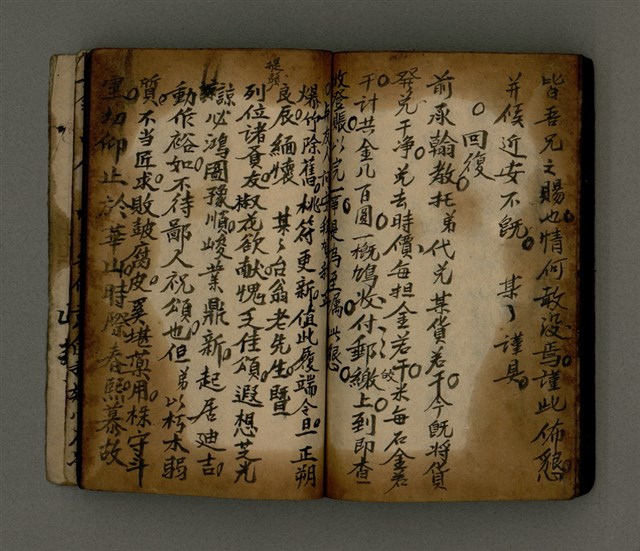 皆吾兄之賜也情何敢没焉謹此佈懇
并候近安不旣　某〻謹具
○回復
前承翰教托弟代兑某貨若干今旣將貨
發兑干净兑去時價每担金若干米每石金若
干計共金几百圓一概鳩收付郵繳上到即查
收登賬以完
爆竹除舊桃符更新值此履端令旦正朔
提頭
良辰緬懷　某〻台翁老先生暨
列位諸貴友椒花欲献愧乏佳頌遐想芝光
諒必鴻圖豫順峻業鼎新起居迪吉
動作裕如不待鄙人祝頌也但弟以朽木弱
質不当匠求敗皷腐皮奚堪藥用株守斗
室切仰止於華山時際春熙慕故